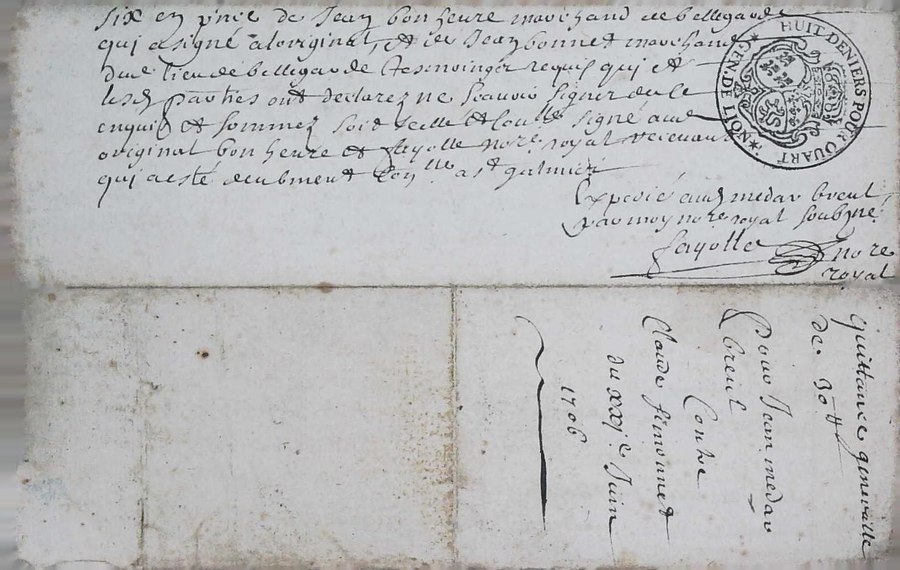 six en p'nce de Jean bon heure marchand de bellegarde
qui a signé a loriginal, et de Jean bonnet marchand
dud lieu de bellegarde tesmoingz requis qui et
lesd parties ont declarez ne scavoir signer de ce
enquis et sommez soit scellé et coullé signé aud
original bon heure et fayolle nore royal recevant
qui a esté deubment a st galmier
Expedié aud medar breul
par moy nore royal soubzné
fayolle nore
royal
HUIT DENIERS POUR QUART
GEN. DE
quittance generalle
de 30 tt
Pour Jean medar
breul
Contre
Claude simonnet
du xxje Juin
1706